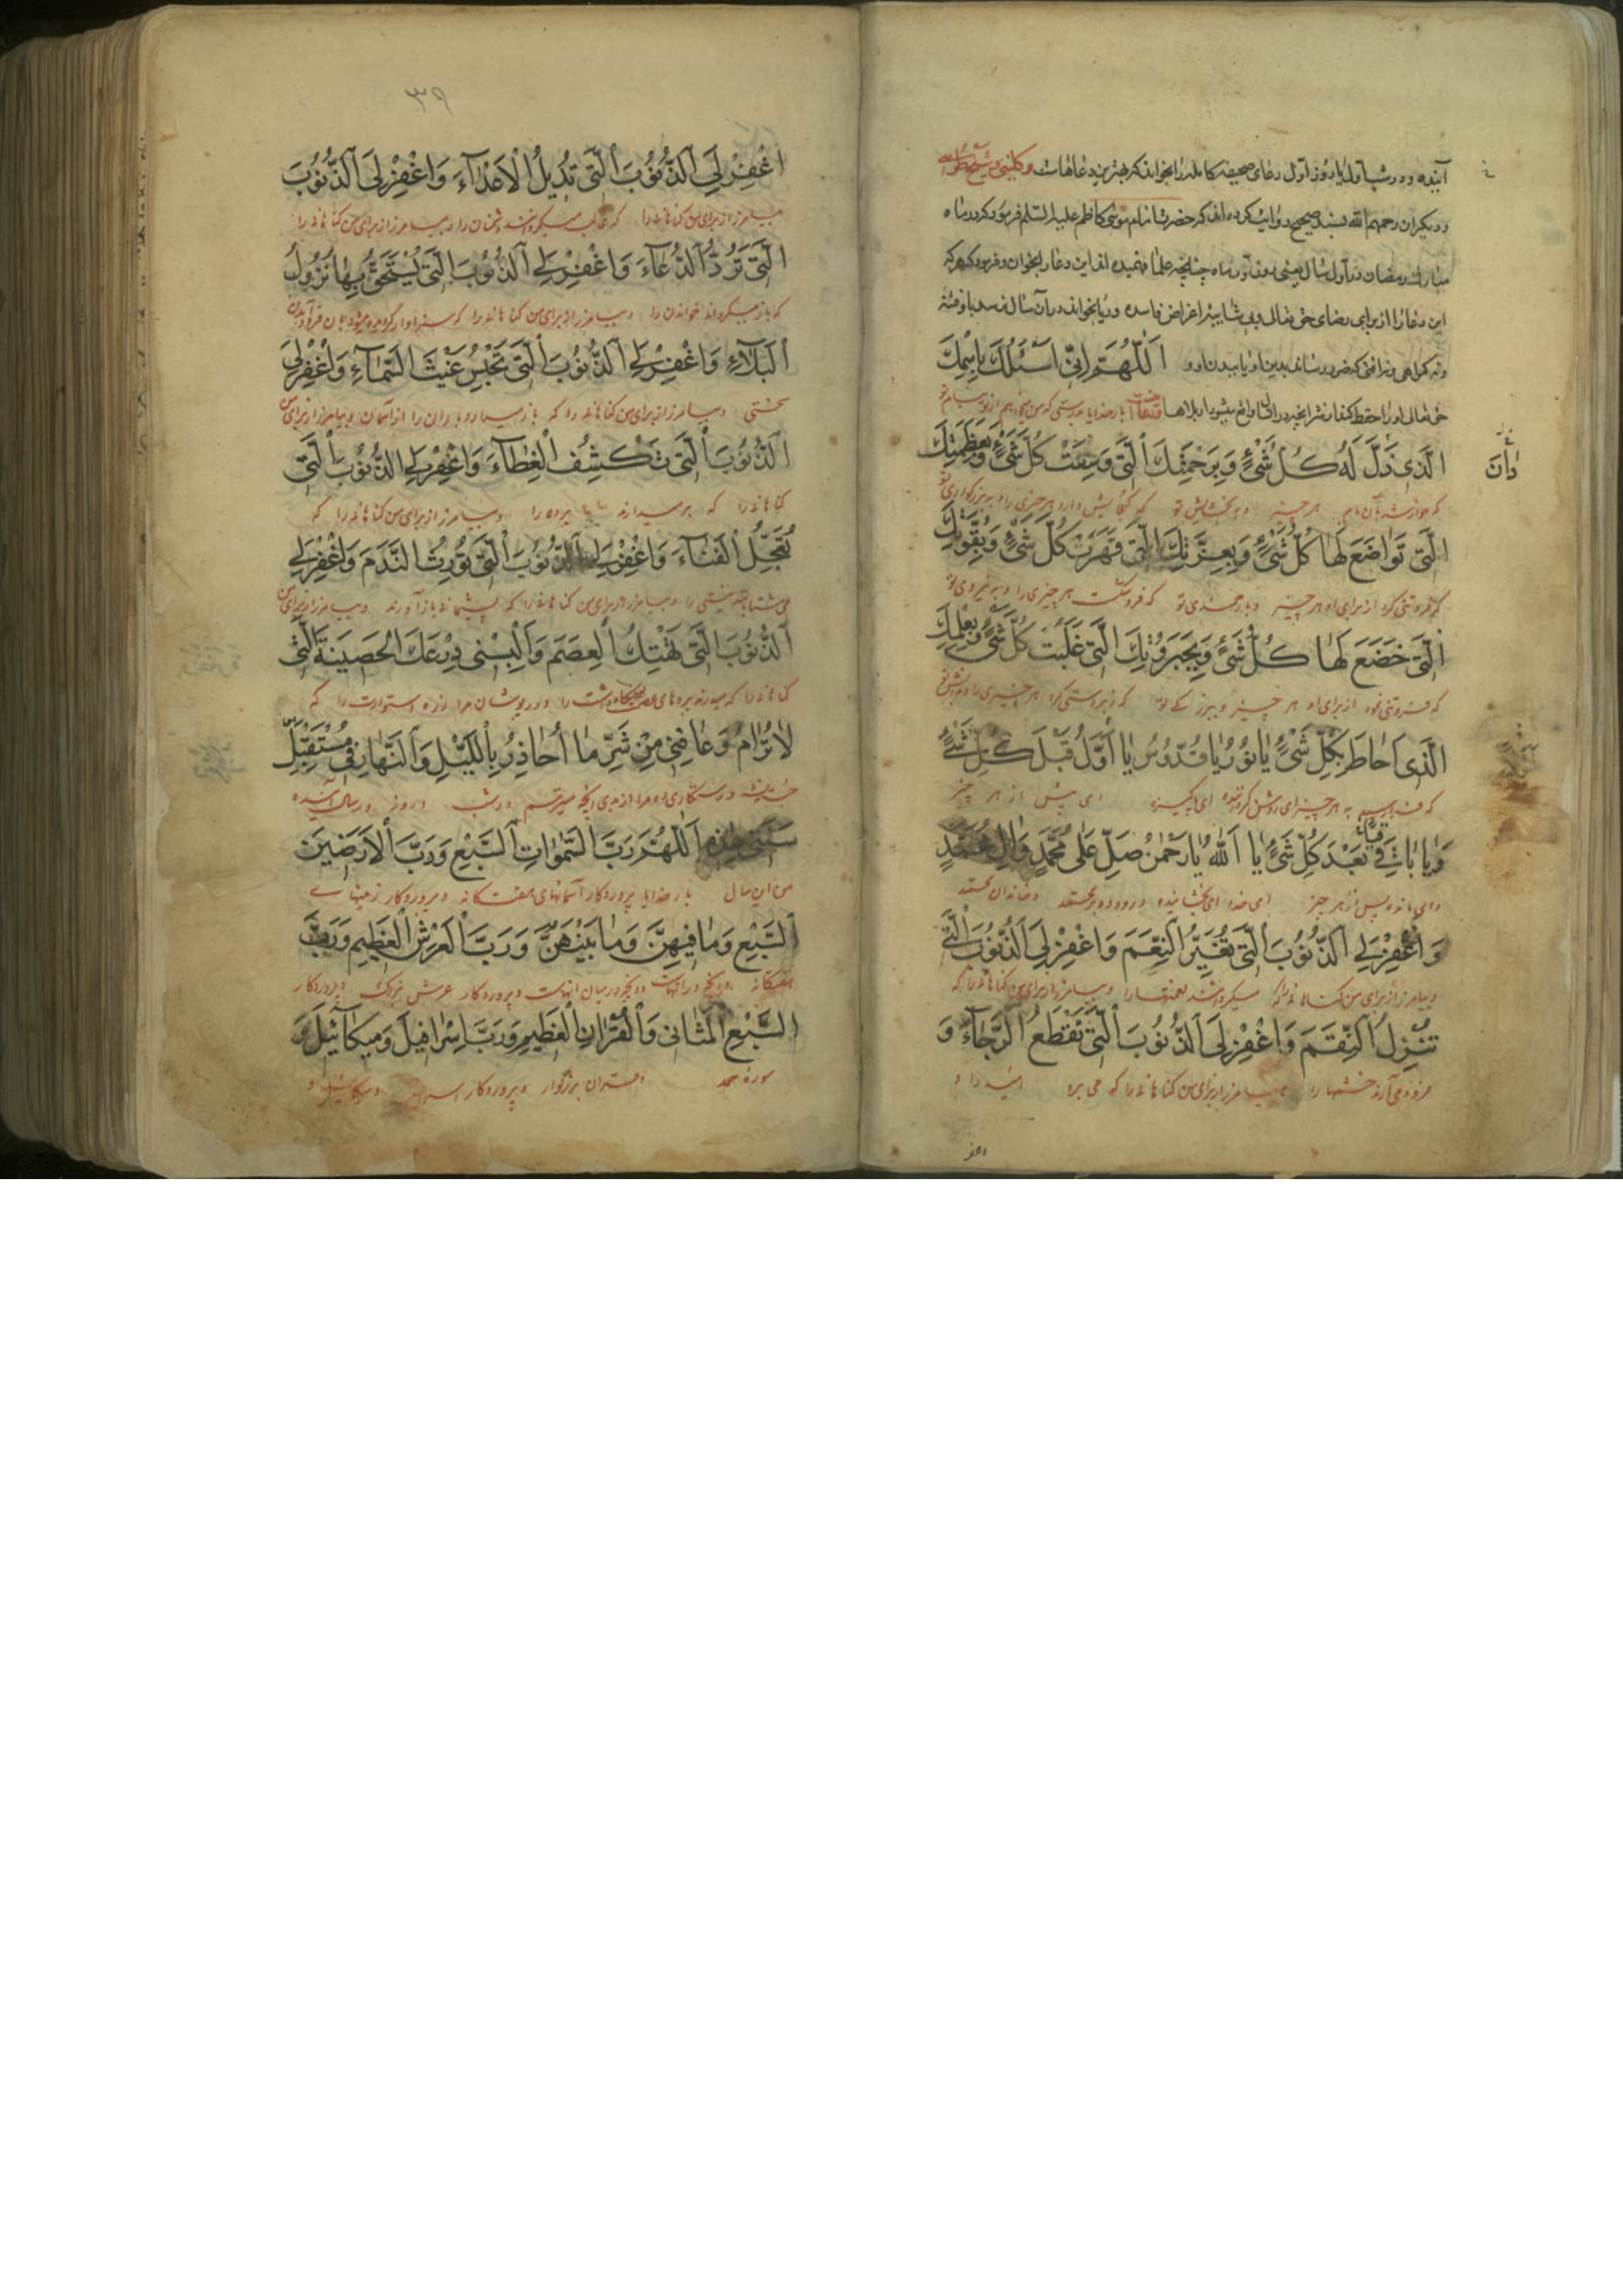 آینده و در شب اول یا روز اول دعای صحیفه کامله را بخواند که بهترین دعاهاست و کلینی و شیخ طوسی
و دیگران رحمهم الله بسند صحیح روایت کرده اند که حضرت امام موسی کاظم علیه السلم فرمود که در ماه
مبارک رمضان در اول سال یعنی روز اول ماه چنانچه علما فهمیده اند این دعا را بخوان و فرمود که هر که
این دعا را از برای رضای حق تعالی و بی شایبه اغراض فاسده و ریا بخواند در آن سال نرسد باو فتنه
و نه گمراهی و نه آفتی که ضرر رساند بدین او یا ببدن او و اَللّهُمَّ اِنّی اَسْئَلُكَ بِاسْمِكَ
حق تعالی او را حفظ کند از شر آنچه در آن سال واقع میشود از بلاها دعا بار خدایا بدرستی که من میخواهم از تو بنام تو
الَّذی دانَ لَهُ كُلُّ شَیْءٍ وَبِرَحْمَتِكَ الَّتی وَسِعَتْ كُلَّ شَیْءٍ وَبِعَظَمَتِكَ
که خوار شد بآن نام هر چیز و به بخشایش تو که گنجایش دارد هر چیزی را و به بزرگواری تو
الَّتی تَواضَعَ لَها كُلُّ شَیْءٍ وَبِعِزَّتِكَ الَّتی قَهَرَتْ كُلَّ شَیْءٍ وَبِقُوَّتِكَ
که فروتنی کرد از برای او هر چیز و بارجمندی تو که فرو شکست هر چیزی را و به نیروی تو
الَّتی خَضَعَ لَها كُلُّ شَیْءٍ وَبِجَبَرُوتِكَ الَّتی غَلَبَتْ كُلَّ شَیْءٍ وَبِعِلْمِكَ
که فروتنی نمود از برای او هر چیز و ببزرگی تو که زبردستی کرد هر چیزی را و بدانش تو
الَّذی اَحاطَ بِكُلِّ شَیْءٍ یا نُورُ یا قُدُّوسُ یا اَوَّلُ قَبْلَ كُلِّ شَیْءٍ
که فرا رسید به هر چیز ای روشن کرداننده ای پاکیزه ای پیش از هر چیز
وَیا باقِی بَعْدَ كُلِّ شَیْءٍ یا اَللهُ یا رَحْمنُ صَلِّ عَلی مُحَمَّدٍ وَالِ مُحَمَّدٍ
و ای مانده پس از هر چیز ای خدا ای بخشاینده درود ده بر محمد و خاندان محمد
وَ اغْفِرْ لِیَ الذُّنُوبَ الَّتی تُغَیِّرُ النِّعَمَ وَ اغْفِرْ لِیَ الذُّنُوبَ الَّتی
و بیامرز از برای من گناهانی را که میگردانند نعمتها را و بیامرز از برای من گناهانی را که
تُنْزِلُ النِّقَمَ وَ اغْفِرْ لِیَ الذُّنُوبَ الَّتی تَقْطَعُ الرَّجاءَ وَ
فرود می آرند خشمها را و بیامرز از برای من گناهانی را که می برد امید را و
دانَ
اغفر
٣٩
اغْفِرْ لِیَ الذُّنُوبَ الَّتی تُدیلُ الْاَعْداءَ وَ اغْفِرْ لِیَ الذُّنُوبَ
بیامرز از برای من گناهانی را که غالب میگردانند دشمنان را و بیامرز از برای من گناهانی را
الَّتی تَرُدُّ الدُّعاءَ وَ اغْفِرْ لِیَ الذُّنُوبَ الَّتی یُسْتَحَقُّ بِها نُزُولُ
که باز میگرداند خواندن را و بیامرز از برای من گناهانی را که سزاوار گردیده میشود بآن فرود آمدن
الْبَلاءِ وَ اغْفِرْ لِیَ الذُّنُوبَ الَّتی تَحْبِسُ غَیْثَ السَّماءِ وَ اغْفِرْ لِیَ
سختی و بیامرز از برای من گناهانی را که باز میدارد باران را از آسمان و بیامرز از برای من
الذُّنُوبَ الَّتی تَكْشِفُ الْغِطاءَ وَ اغْفِرْ لِیَ الذُّنُوبَ الَّتی
گناهانی را که برمیدارند پرده را و بیامرز از برای من گناهانی را که
تُعَجِّلُ الْفَناءَ وَ اغْفِرْ لِیَ الذُّنُوبَ الَّتی تُورِثُ النَّدَمَ وَ اغْفِرْ لِی
می شتابانند نیستی را و بیامرز از برای من گناهانی را که پشیمانی باز آورند و بیامرز از برای من
الذُّنُوبَ الَّتی تَهْتِكُ الْعِصَمَ وَ اَلْبِسْنی دِرْعَكَ الْحَصینَةَ الَّتی
گناهانی را که میدرند پرده های نگاهداشت را و در پوشان مرا زره استوارت را که
لا تُرامُ وَ عافِنی مِنْ شَرِّ ما اُحاذِرُ بِاللَّیْلِ وَ النَّهارِ فی مُسْتَقْبَلِ
و رستگاری ده مرا از بدی آنچه میترسم در شب و روز در سال آینده
سَنَتی هذِهِ اَللّهُمَّ رَبَّ السَّمواتِ السَّبْعِ وَ رَبَّ الْاَرَضینَ
من این سال بار خدایا پروردکار آسمانهای هفتکانه و پروردکار زمینهای
السَّبْعِ وَ ما فیهِنَّ وَ ما بَیْنَهُنَّ وَ رَبَّ الْعَرْشِ الْعَظیمِ وَ رَبَّ
هفتکانه و آنچه در آنهاست و آنچه در میان آنهاست و پروردکار عرش بزرک و پروردکار
السَّبْعِ الْمَثانی وَ الْقُرْانِ الْعَظیمِ وَ رَبَّ اِسْرافیلَ وَ میكآئیلَ وَ
سوره حمد و قران بزرکوار و پروردکار اسرافیل و میکائیل و